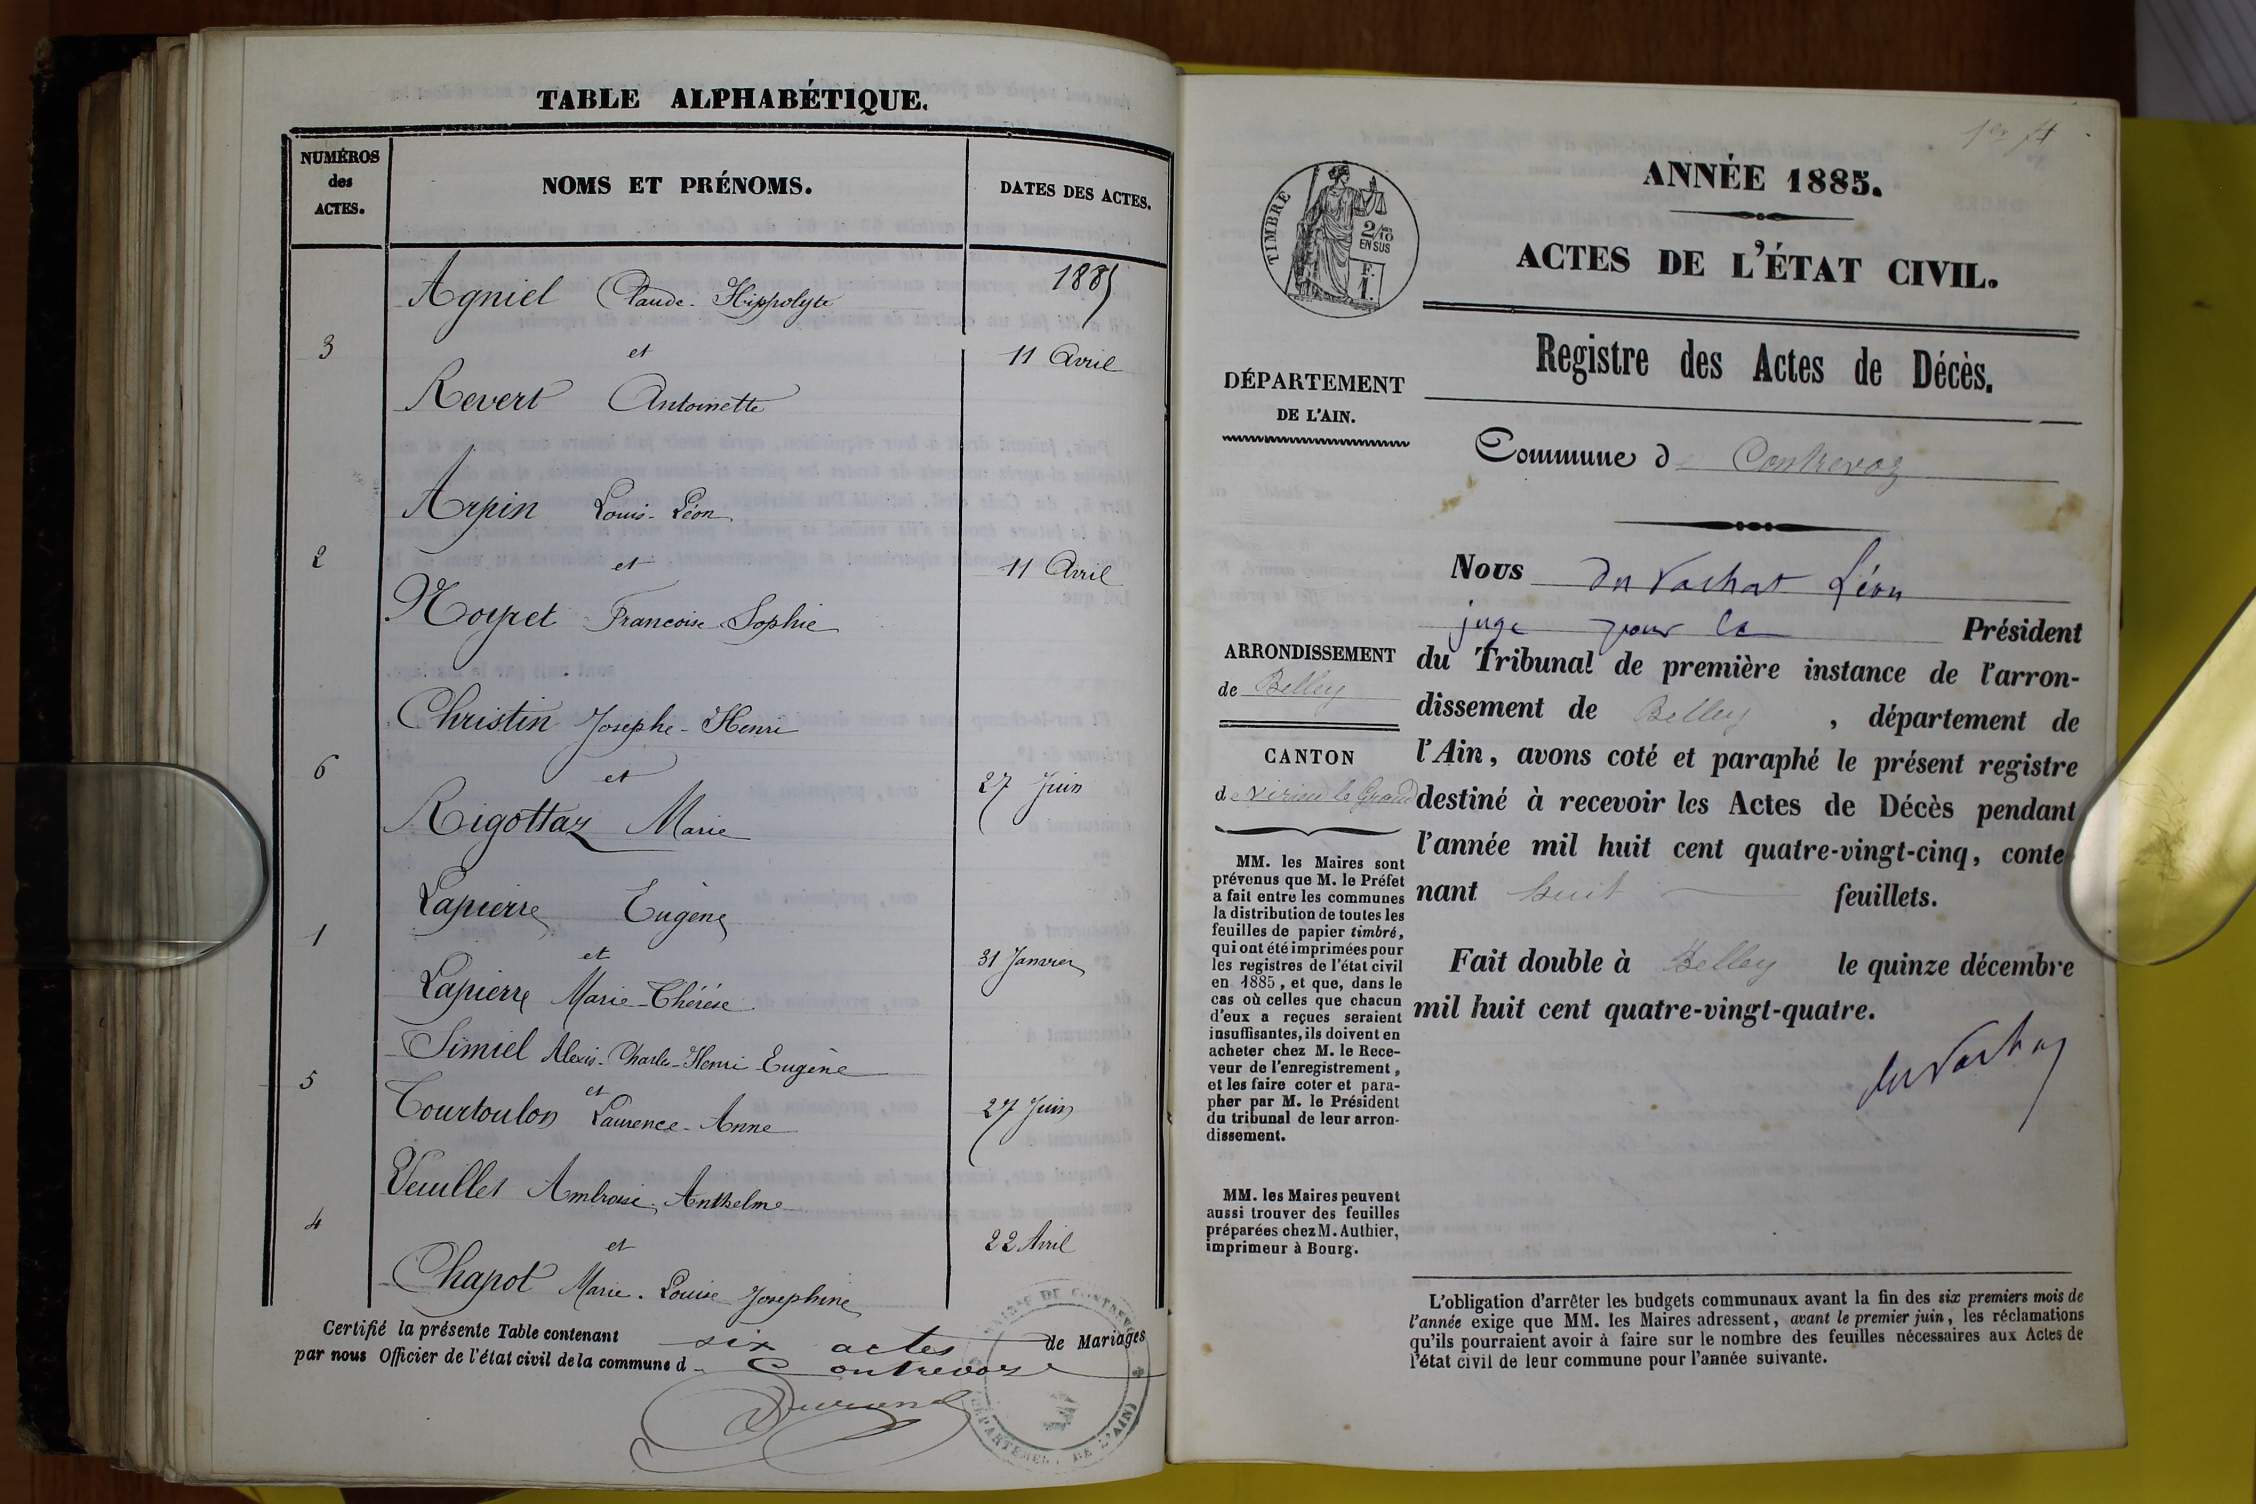 TABLE ALPHABÉTIQUE.
NUMÉROS
des
ACTES.
NOMS ET PRÉNOMS.
DATES DES ACTES.
Agniel Claude-Hippolyte
1885
3
et
11 Avril
Revert Antoinette
Arpin Louis-Léon
2
et
11 Avril
Noyret Francoise Sophie
Christin Josephe-Henri
6
et
27 Juin
Rigottaz Marie
Lapierre Eugène
1
et
31 Janvier
Lapierre Marie-Thérése
Simiel Alexis-Charles-Henri-Eugène
5
et
27 Juin
Tourtoulon Laurence-Anne
Veuillet Ambroise Anthelme
4
et
22 Avril
Chapot Marie-Louise Josephine
Certifié la présente Table contenant six actes de Mariages
par nous Officier de l'état civil de la commune d Contrevoz
MAIRIE DE CONTREVOZ
(DÉPARTEMENT DE L'AIN)
TIMBRE
2/10
EN SUS
F.
1.
ANNÉE 1885.
ACTES DE L'ÉTAT CIVIL.
Registre des Actes de Décès.
DÉPARTEMENT
DE L'AIN.
Commune de Contrevoz
ARRONDISSEMENT
de Belley
CANTON
de Virieu le Grand
MM. les Maires sont
prévenus que M. le Préfet
a fait entre les communes
la distribution de toutes les
feuilles de papier timbré,
qui ont été imprimées pour
les registres de l'état civil
en 1885, et que, dans le
cas où celles que chacun
d'eux a reçues seraient
insuffisantes, ils doivent en
acheter chez M. le Rece-
veur de l'enregistrement,
et les faire coter et para-
pher par M. le Président
du tribunal de leur arron-
dissement.
MM. les Maires peuvent
aussi trouver des feuilles
préparées chez M. Authier,
imprimeur à Bourg.
Nous du Vachat Léon
juge pour le Président
du Tribunal de première instance de l'arron-
dissement de Belley, département de
l'Ain, avons coté et paraphé le présent registre
destiné à recevoir les Actes de Décès pendant
l'année mil huit cent quatre-vingt-cinq, conte-
nant huit feuillets.
Fait double à Belley le quinze décembre
mil huit cent quatre-vingt-quatre.
du Vachat
L'obligation d'arrêter les budgets communaux avant la fin des six premiers mois de
l'année exige que MM. les Maires adressent, avant le premier juin, les réclamations
qu'ils pourraient avoir à faire sur le nombre des feuilles nécessaires aux Actes de
l'état civil de leur commune pour l'année suivante.